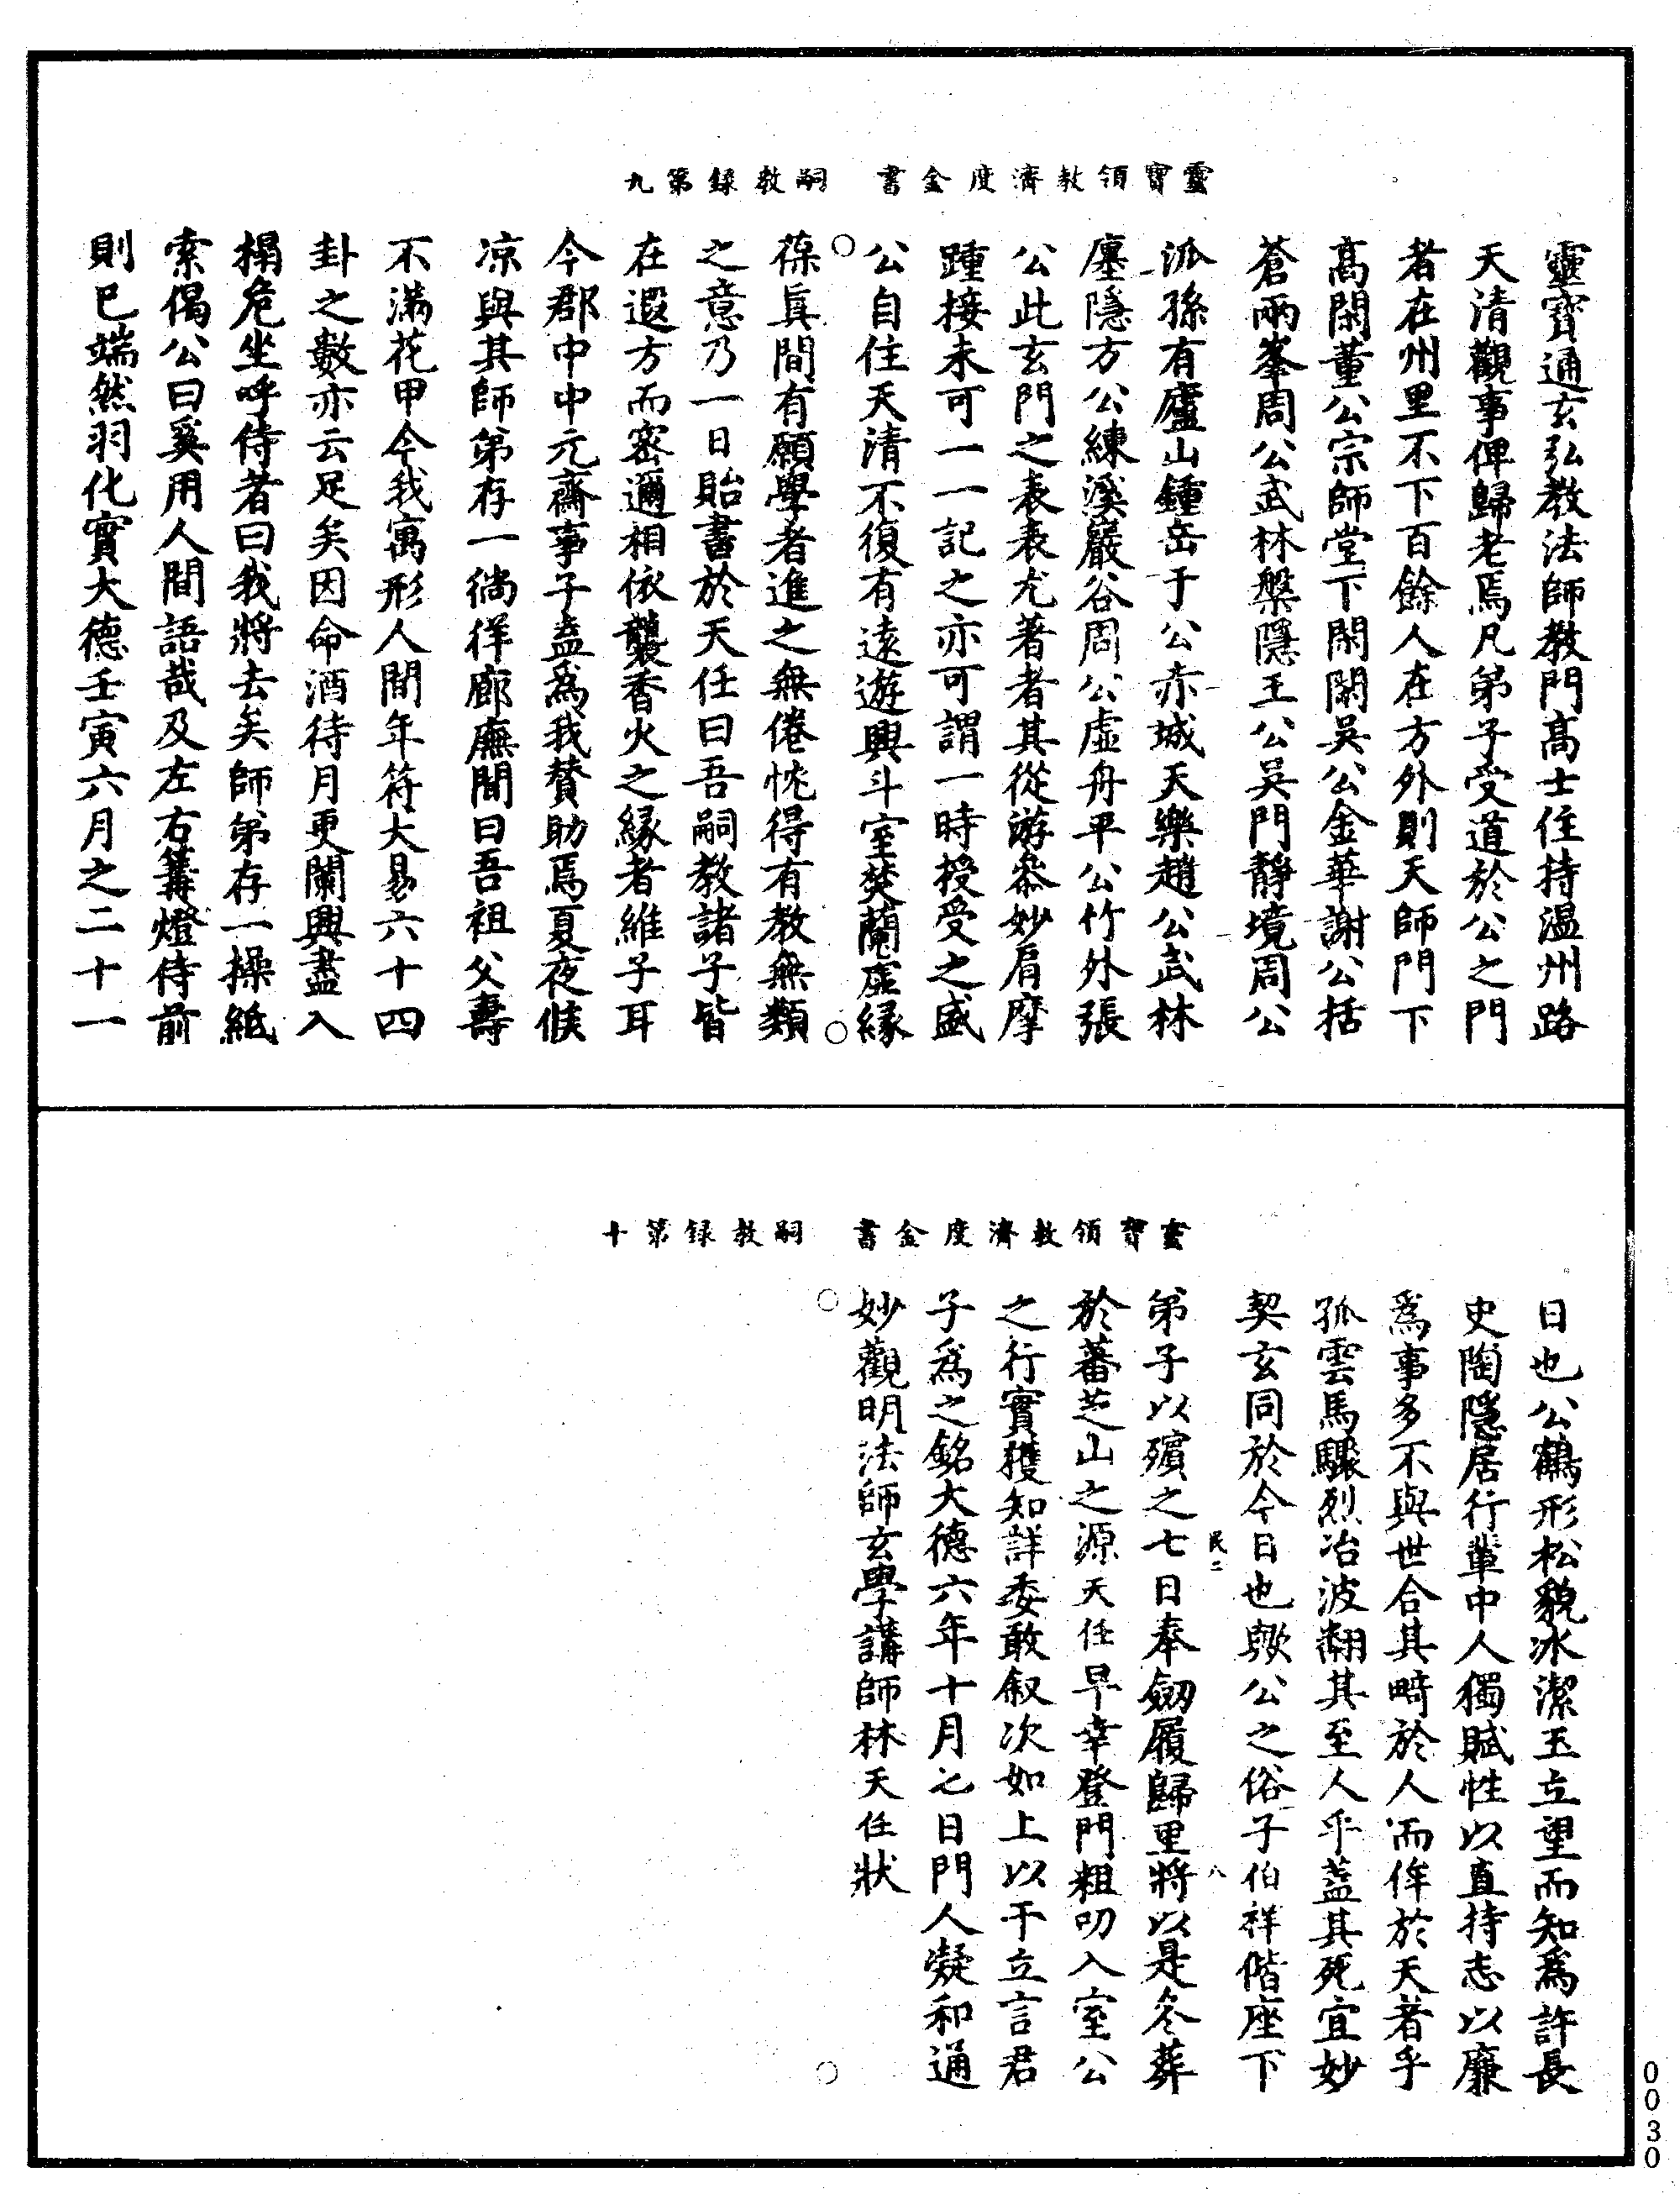 靈寶領教濟度金書　嗣教錄第九
靈寶通玄弘教法師教門高士住持溫州路
天清觀事俾歸老焉凡弟子受道於公之門
者在州里不下百餘人在方外則天師門下
高閑董公宗師堂下閑閑吳公金華謝公括
蒼兩峯周公武林槃隱王公吳門靜境周公
派孫有廬山鍾岳于公赤城天樂趙公武林
廛隱方公練溪巖谷周公虛舟平公竹外張
公此玄門之表表尤著者其從游叅妙肩摩
踵接未可一一記之亦可謂一時授受之盛
公自住天清不復有遠遊興斗室焚蘭虛緣
葆眞間有願學者進之無倦忱得有教無類
之意乃一日貽書於天任曰吾嗣教諸子皆
在遐方而密邇相依襲香火之緣者維子耳
今郡中中元齋事子盍爲我贊助焉夏夜候
凉與其師弟存一徜徉廊廡間曰吾祖父壽
不滿花甲今我寓形人間年符大易六十四
卦之數亦云足矣因命酒待月更闌興盡入
榻危坐呼侍者曰我將去矣師弟存一操紙
索偈公曰奚用人間語哉及左右篝燈侍前
則已端然羽化實大德壬寅六月之二十一
靈寶領教濟度金書　嗣教録第十
日也公鶴形松貌冰潔玉立望而知爲許長
史陶隱居行輩中人獨賦性以直持志以廉
爲事多不與世合其畸於人而侔於天者乎
孤雲馬驟烈冶波翻其至人乎蓋其死宜妙
契玄同於今日也歟公之俗子伯祥偕座下
民二　八
弟子以殯之七日奉劒履歸里將以是冬葬
於蕃芝山之源天任早幸登門粗叨入室公
之行實獲知詳委敢叙次如上以干立言君
子爲之銘大德六年十月乙日門人凝和通
妙觀明法師玄學講師林天任狀
0030